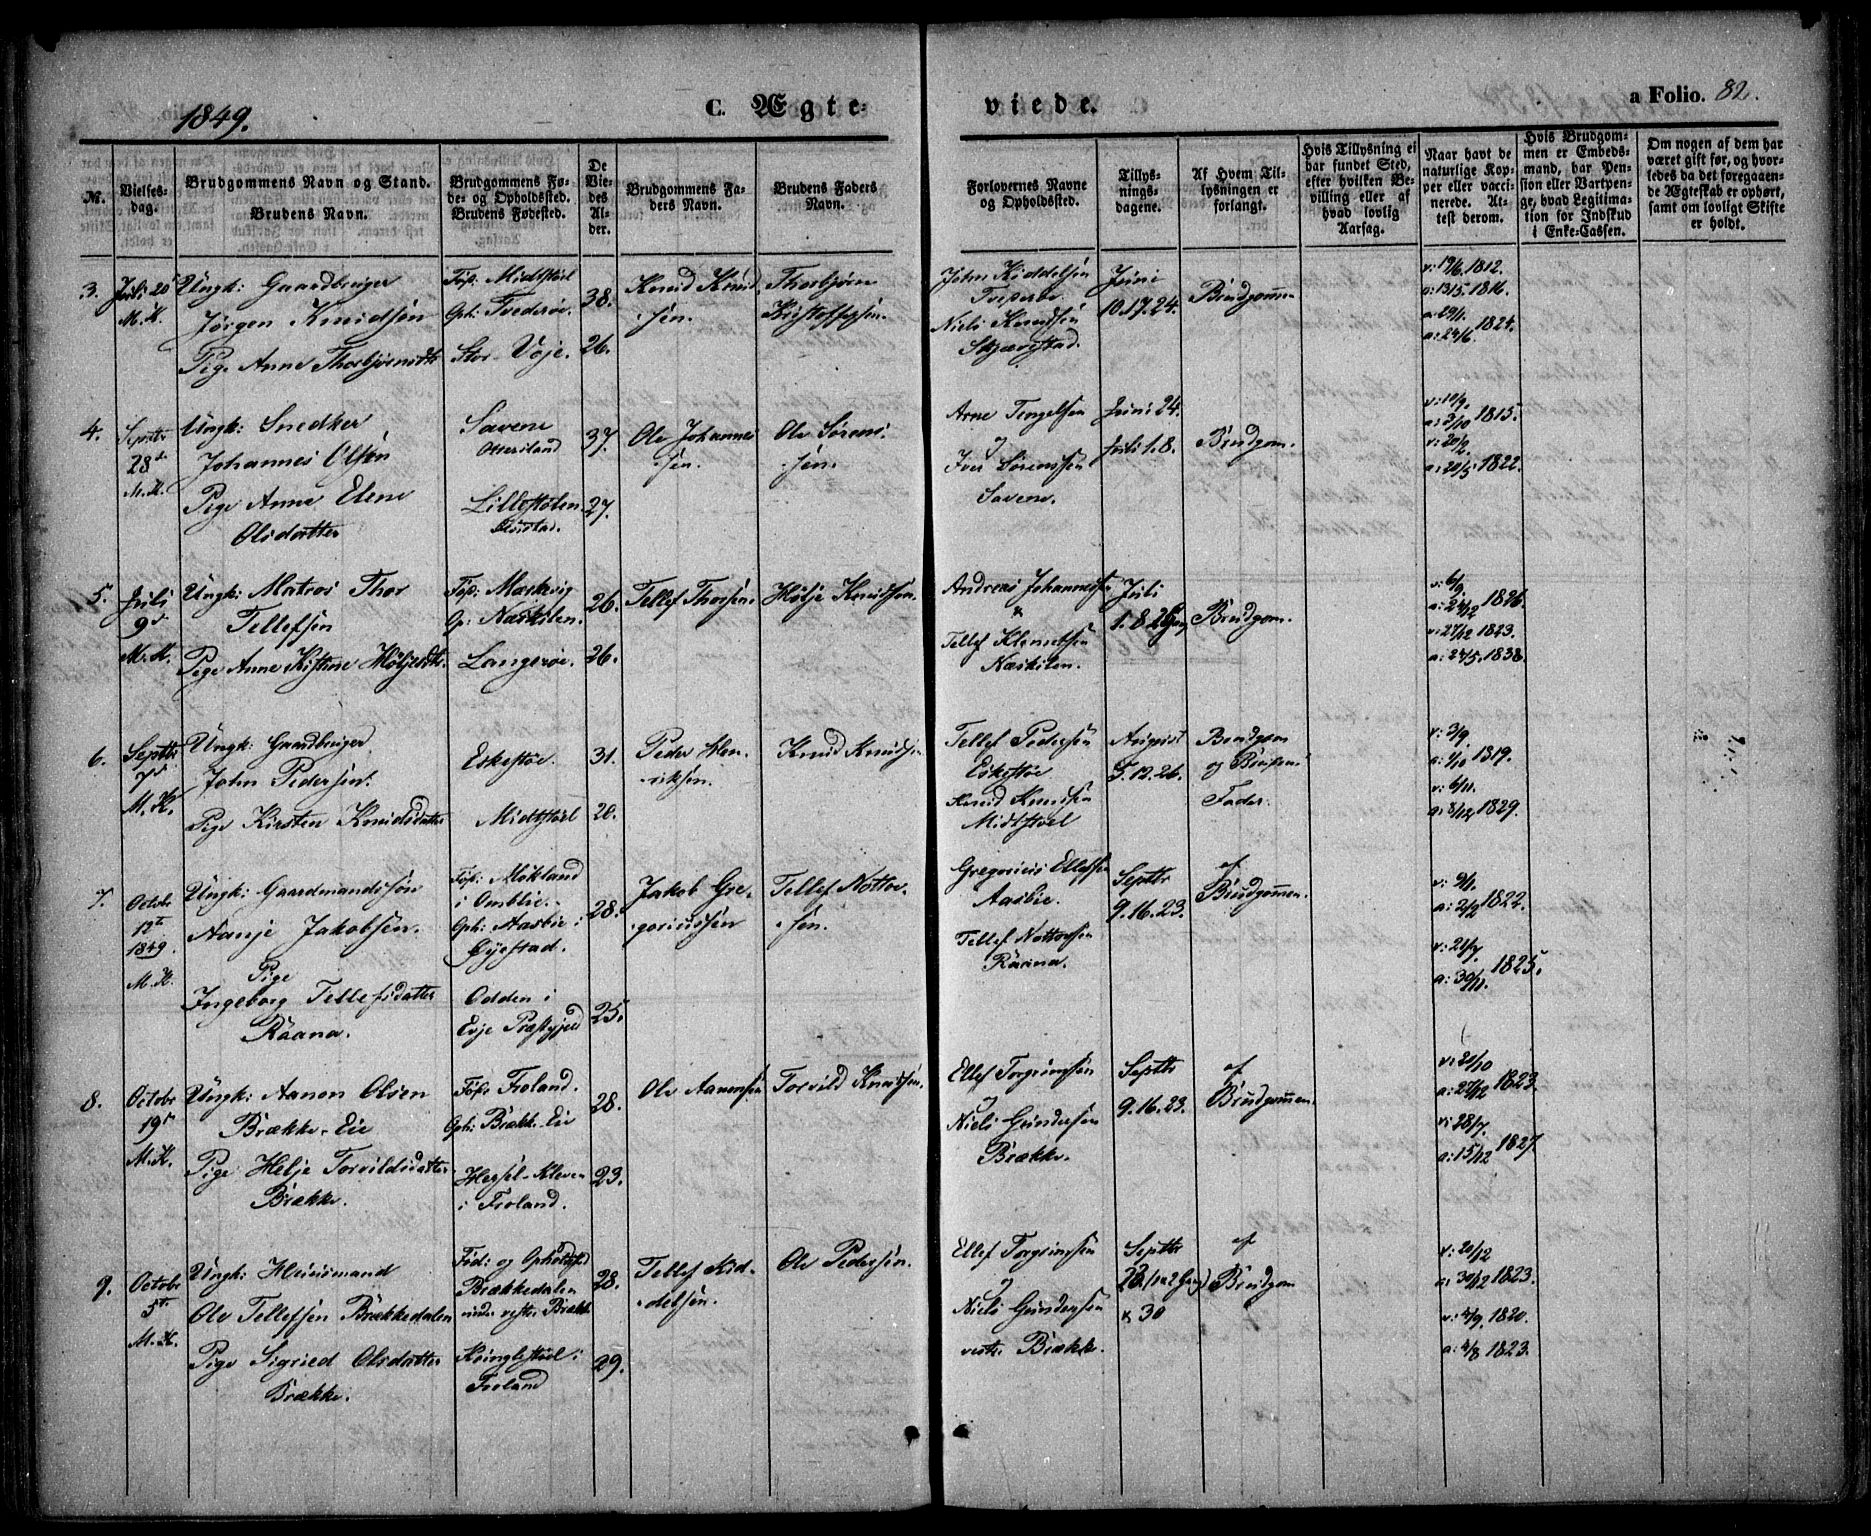 1849.
C. Ægte-
viede.
a Folio. 82.
№.
Vielses-
dag.
Brudgommens Navn og Stand.
Brudens Navn.
Brudgommens Fø-
de- og Opholdssted.
Brudens Fødested.
De
Vie-
des
Al-
der.
Brudgommens Fa-
ders Navn.
Brudens Faders
Navn.
Forlovernes Navne
og Opholdssted.
Tillys-
nings-
dagene.
Af Hvem Til-
lysningen er
forlangt.
Hvis Tillysning ei
har fundet Sted,
efter hvilken Be-
villing eller af
hvad lovlig
Aarsag.
Naar havt de
naturlige Kop-
per eller vacci-
nerede. At-
test derom.
Hvis Brudgom-
men er Embeds-
mand, har Pen-
sion eller Vartpen-
ge, hvad Legitima-
tion for Indskud
i Enke-Cassen.
Om nogen af dem har
været gift før, og hvor-
ledes da det foregaaen-
de Ægteskab er ophørt,
samt om lovligt Skifte
er holdt.
3.
Juli 20
M. K.
Ungk: Gaardbruger
Jørgen Knudsen
Pige Anne Thorbjørnsdtr
Føs: Midtstøel
Oph: Tvederøe.
Stor-Voje.
38.
26.
Knud Knud-
sen.
Thorbjørn
Kristoffersen.
John Kiddelsen
Niels Knudsen
Skjævestad.
Juni
10.17.24.
Brudgommen
v: 19/6. 1812.
a: 13/5. 1816.
a: 29/1.
a: 24/6. 1824.
4.
Septbr
28de
M. K.
Ungk: Snedker
Johannes Olsen
Pige Anne Elene
Olsdatter
Savene
Lillestølen.
37.
27.
Ole Johannes-
sen.
Ole Sørens-
sen.
Arne Tengelsen
Iver Sørenssen
Savene.
Juni 24.
Juli 1.8.
Brudgom.
v: 10/9.
a: 3/10 1815.
v: 20/2.
a: 20/5. 1822.
5.
Juli
9de
M. K.
Ungk: Matros Thor
Tellefsen
Pige Anne Kistine Høljesdtr.
Føs: Mærkevig
Op: Næskilen.
Langerøe.
26.
26.
Tellef Thorsen.
Hølje Knudsen.
Andreas Johannessen
&
Tellef Klemetsen
Næskilen.
Juli
1. 8. 2 Gang
Brudgom.
v: 6/9.
a: 24/12 1826.
v: 27/12 1823.
a: 24/5. 1838.
6.
Septbr
7de
M. K.
Ungk: Gaardbruger
John Pedersen.
Pige Kirsten Knudsdatter
Eskestøe.
Midtstøel
31.
20.
Peder Hen-
riksen.
Knud Knudsen
Tellef Pedersen
Eskestøe
Knud Knudsen
Midtstøel
August
5. 12. 26.
Brudgom
og Brudens
Fader.
v: 3/9.
a: 1/10 1819.
v: 6/11.
a: 8/12 1829.
7.
Octobr
12te
1849.
M. K.
Ungk: Gaardmandssøn
Aanje Jakobsen.
Pige
Ingeborg Tellefsdatter
Raana.
Føs: Mökland
i Omblie.
Oph: Aasbie i
Öyestad.
Odden i
Evje Præstgjeld
28.
25.
Jakob Gre-
goriussen
Tellef Nottov-
sen.
Gregorius Ellefsen
Aasbie.
Tellef Nottovsen
Raana.
Septbr
9. 16. 23.
af
Brudgommen.
v: 9/1.
a: 2/2 1822.
v: 21/7.
a: 30/11. 1825.
8.
Octobr
19de
M. K.
Ungk: Aanon Olsen
Brække-Eie
Pige Helje Torvildsdatter
Brække.
Føs: Froland.
Oph: Brække Eie
Hessel-Kleven
i Froland.
28.
23.
Ole Aanensen
Torvild Knudsen.
Ellef Torgrimsen
Niels Gundersen
Brække.
Septbr
9. 16. 23.
af
Brudgommen.
v: 20/10
a: 27/12 1823.
v: 28/7.
a: 15/12 1827.
9.
Octobr
5te
M. K.
Ungk: Huusmand
Ole Tellefsen Brækkedalen
Pige Sigried Olsdatter
Brække.
Fød: og Opholdssted
Brækkedalen
under vestre Brække
Kringlestøel i
Froland
28.
29.
Tellef Kid-
delsen.
Ole Pedersen.
Ellef Torgrimsen
Niels Gundersen
vestre Brække.
Septbr
23. (1 a 2 Gang)
& 30
af
Brudgom
v: 20/12
a: 30/12 1823.
v: 4/9. 1820.
a: 4/8 1823.